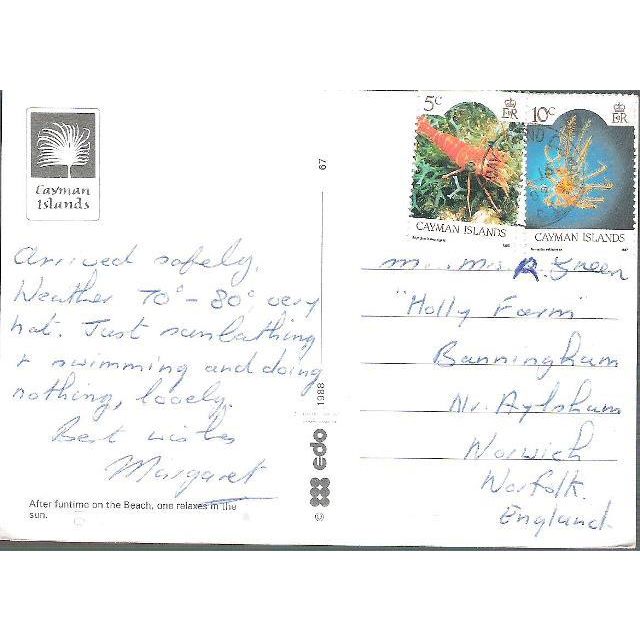 Cayman
Islands
Arrived safely.
Weather 70° - 80° very
hot. Just sunbathing
+ swimming and doing
nothing, lovely.
Best wishes
Margaret
After funtime on the Beach, one relaxes in the
sun.
67
1988
edo
©
5c
E II R
CAYMAN ISLANDS
10c
E II R
CAYMAN ISLANDS
1987
Mr. Mrs R. Green
"Holly Farm"
Banningham
Nr. Aylsham
Norwich
Norfolk.
England